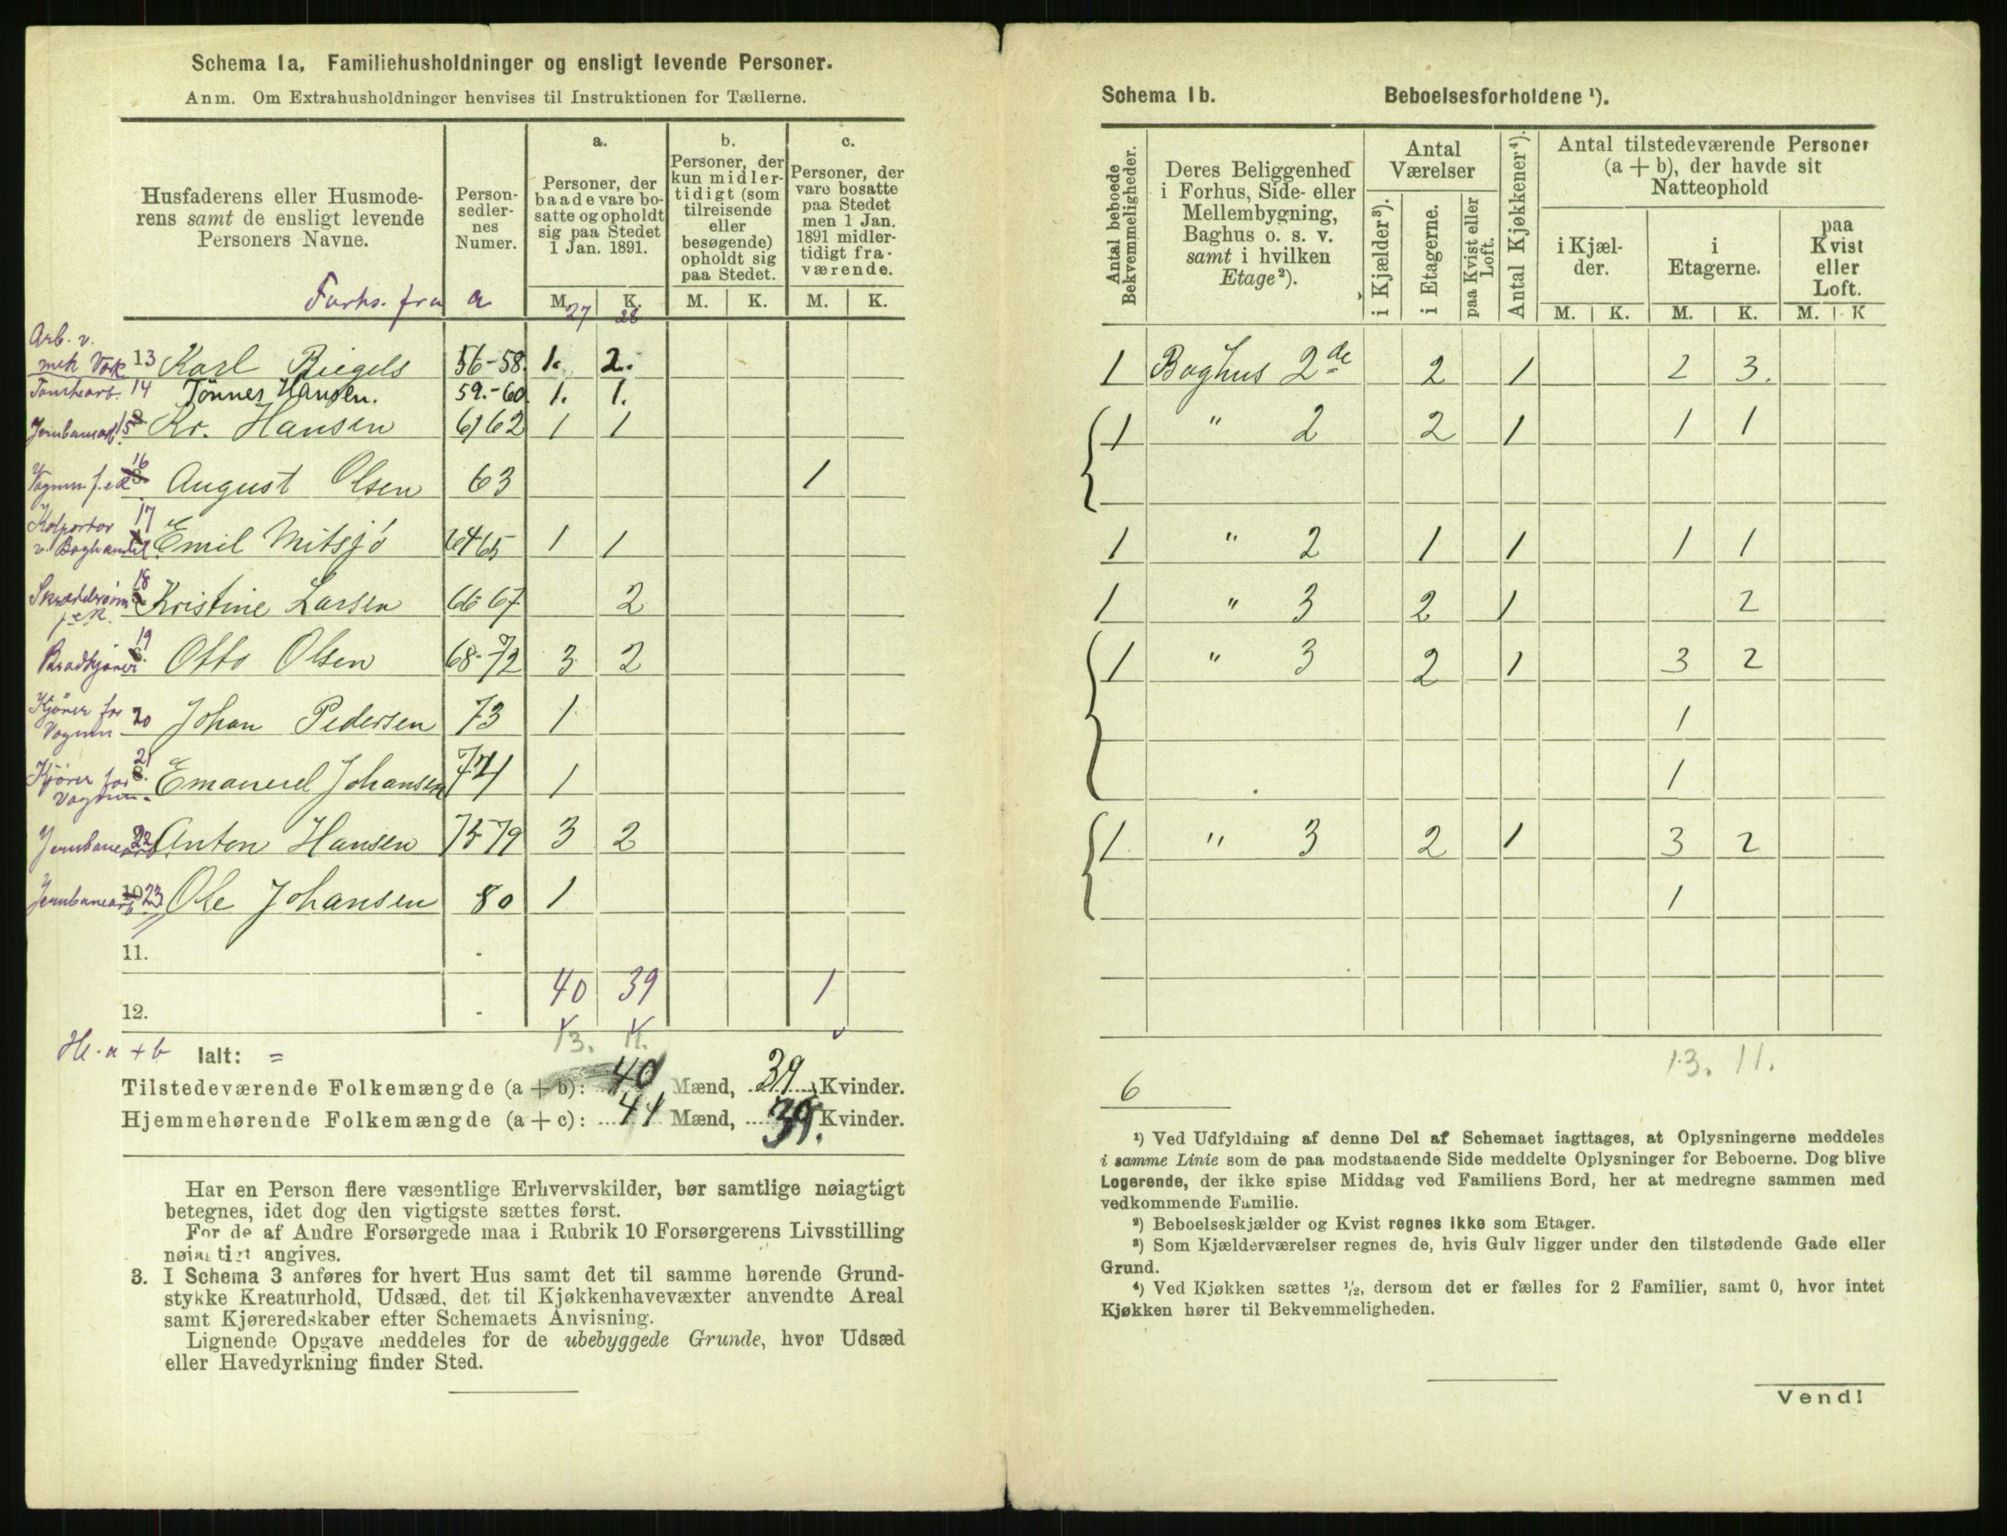 Schema 1a. Familiehusholdninger og ensligt levende Personer.
Anm. Om Extrahusholdninger henvises til Instruktionen for Tællerne.
Husfaderens eller Husmode-
rens samt de ensligt levende
Personers Navne.
Person-
sedler-
nes
Numer.
a.
Personer, der
baade vare bo-
satte og opholdt
sig paa Stedet
1 Jan. 1891.
b.
Personer, der
kun midler-
tidigt (som
tilreisende
eller
besøgende)
opholdt sig
paa Stedet.
c.
Personer, der
vare bosatte
paa Stedet
men 1 Jan.
1891 midler-
tidigt fra-
værende.
M. K. M. K. M. K.
fra a 27 28
Arb. v.
mek 13 Karl Biegels 56-58. 1. 2.
14 Tönnes Hansen. 59.-60. 1. 1.
15 Kr. Hansen 61 62 1 1
16 August Olsen 63 1
Kolportør 17
v. Boghandel. Emil Mitsjö 64 65 1 1
18 Kristine Larsen 66 67 2
19
Brødkjører Otto Olsen 68-72 3 2
Kjörer for
Vognm 20 Johan Pedersen 73 1
21
Kjörer for
Vognm. Emanuel Johansen 74 1
Jernbanearb. 22 Anton Hansen 75 79 3 2
Jernbanearb 10 23 Ole Johansen 80 1
11.
40 39 1
12.
13. 11.
Hl. a + b Ialt: =
Tilstedeværende Folkemængde (a + b): 40 Mænd, 39 Kvinder.
Hjemmehørende Folkemængde (a + c): 41 Mænd, 39. Kvinder.
Har en Person flere væsentlige Erhvervskilder, bør samtlige nøiagtigt
betegnes, idet dog den vigtigste sættes først.
For de af Andre Forsørgede maa i Rubrik 10 Forsørgerens Livsstilling
nøiagtigt angives.
3. I Schema 3 anføres for hvert Hus samt det til samme hørende Grund-
stykke Kreaturhold, Udsæd, det til Kjøkkenhavevæxter anvendte Areal
samt Kjøreredskaber efter Schemaets Anvisning.
Lignende Opgave meddeles for de ubebyggede Grunde, hvor Udsæd
eller Havedyrkning finder Sted.
Schema 1b. Beboelsesforholdene ¹).
Antal beboede
Bekvemmeligheder.
Deres Beliggenhed
i Forhus, Side- eller
Mellembygning,
Baghus o. s. v.
samt i hvilken
Etage²).
Antal
Værelser
i Kjælder³).
i Etagerne.
paa Kvist eller
Loft.
Antal Kjøkkener⁴).
Antal tilstedeværende Personer
(a + b), der havde sit
Natteophold
i Kjæl-
der.
i
Etagerne.
paa
Kvist
eller
Loft.
M. K. M. K. M. K
1 Baghus 2de 2 1 2 3.
1 " 2 2 1 1 1
1 " 2 1 1 1 1
1 " 3 2 1 2
1 " 3 2 1 3 2
1
1
1 " 3 2 1 3 2
1
13. 11.
6
¹) Ved Udfyldning af denne Del af Schemaet iagttages, at Oplysningerne meddeles
i samme Linie som de paa modstaaende Side meddelte Oplysninger for Beboerne. Dog blive
Logerende, der ikke spise Middag ved Familiens Bord, her at medregne sammen med
vedkommende Familie.
²) Beboelseskjælder og Kvist regnes ikke som Etager.
³) Som Kjælderværelser regnes de, hvis Gulv ligger under den tilstødende Gade eller
Grund.
⁴) Ved Kjøkken sættes ½, dersom det er fælles for 2 Familier, samt 0, hvor intet
Kjøkken hører til Bekvemmeligheden.
Vend!